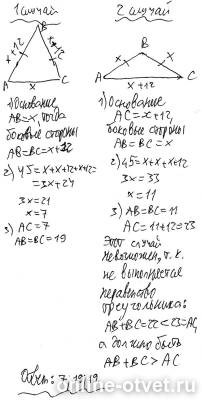 1 случай
B
x+12
x+12
A
x
C
1) Основание
AB=x, тогда
боковые стороны
AB=BC=x+12
2) 45=x+x+12+x+12=
=3x+24
3x=21
x=7
3) AC=7
AB=BC=19
2 случай
B
x
x
A
x+12
C
1) Основание
AC=x+12,
боковые стороны
AB=BC=x
2) 45=x+x+x+12
3x=33
x=11
3) AB=BC=11
AC=11+12=23
Этот случай
невозможен, т.к.
не выполняется
неравенство
треугольника:
AB+BC=22<23=AC,
а должно быть
AB+BC>AC
Ответ: 7, 19, 19
online-otvet.ru